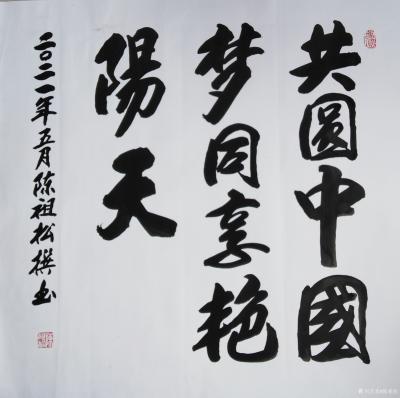 共圆中國
梦同享艳
陽天
二〇二一年五月陈祖松撰书